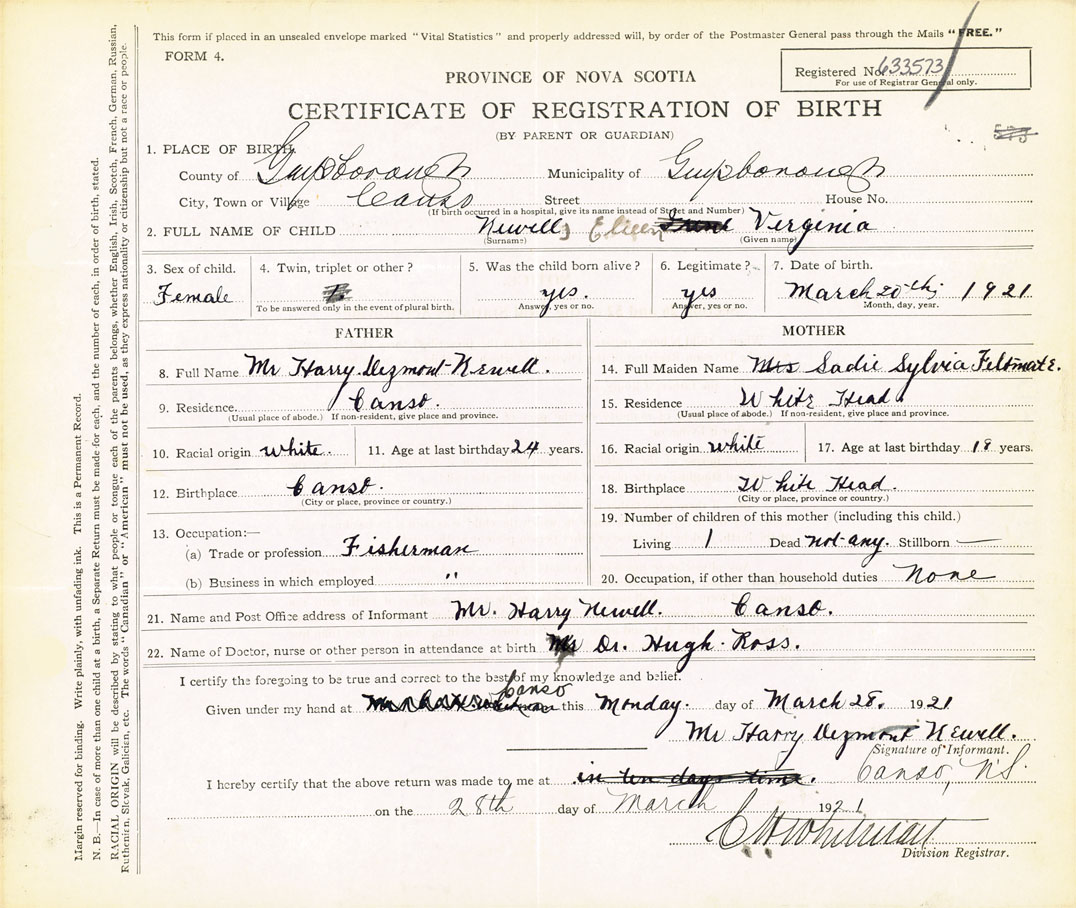 This form if placed in an unsealed envelope marked "Vital Statistics" and properly addressed will, by order of the Postmaster General pass through the Mails "FREE."
FORM 4.
Registered No. 633573
For use of Registrar General only.
PROVINCE OF NOVA SCOTIA
CERTIFICATE OF REGISTRATION OF BIRTH
(BY PARENT OR GUARDIAN)
573
1. PLACE OF BIRTH.
County of Guysborough Municipality of Guysborough
City, Town or Village Canso Street House No.
(If birth occurred in a hospital, give its name instead of Street and Number)
2. FULL NAME OF CHILD Newell, Eileen Irene Virginia
(Surname) (Given name)
3. Sex of child. 4. Twin, triplet or other? 5. Was the child born alive? 6. Legitimate? 7. Date of birth.
Female yes. yes March 20th, 1921
To be answered only in the event of plural birth. Answer, yes or no. Answer, yes or no. Month, day, year.
FATHER
8. Full Name Mr Harry Dezmont Newell.
9. Residence. Canso.
(Usual place of abode.) If non-resident, give place and province.
10. Racial origin white. 11. Age at last birthday 24 years.
12. Birthplace Canso.
(City or place, province or country.)
13. Occupation:—
(a) Trade or profession Fisherman
(b) Business in which employed "
MOTHER
14. Full Maiden Name Mrs Sadie Sylvia Feltmate.
15. Residence White Head
(Usual place of abode.) If non-resident, give place and province.
16. Racial origin white 17. Age at last birthday 18 years.
18. Birthplace White Head.
(City or place, province or country.)
19. Number of children of this mother (including this child.)
Living 1 Dead not any. Stillborn —
20. Occupation, if other than household duties None
21. Name and Post Office address of Informant Mr. Harry Newell. Canso.
22. Name of Doctor, nurse or other person in attendance at birth Dr. Hugh Ross.
I certify the foregoing to be true and correct to the best of my knowledge and belief.
Given under my hand at Canso this Monday. day of March 28. 1921
Mr Harry Dezmont Newell.
Signature of Informant.
I hereby certify that the above return was made to me at in ten days time. Canso, N.S.
on the 28th day of March 1921
C H Whitman
Division Registrar.
Margin reserved for binding. Write plainly, with unfading ink. This is a Permanent Record.
N. B.—In case of more than one child at a birth, a Separate Return must be made for each, and the number of each, in order of birth, stated.
RACIAL ORIGIN will be described by stating to what people or tongue each of the parents belongs, whether English, Irish, Scotch, French, German, Russian,
Ruthenien, Slovak, Galicien, etc. The words "Canadian" or "American" must not be used, as they express nationality or citizenship but not a race or people.